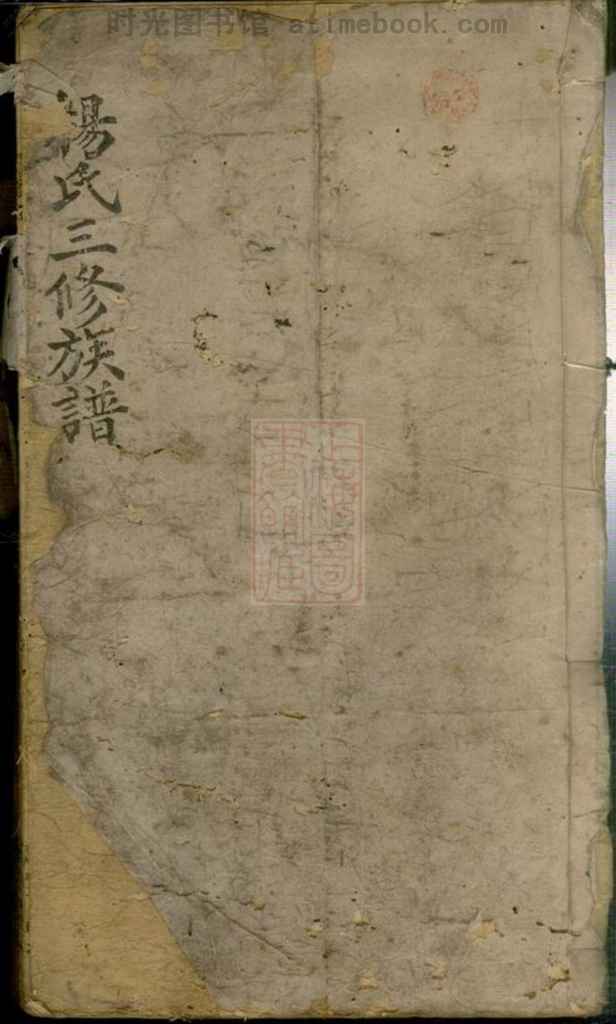 时光图书馆 atimebook.com
湯氏三修族譜